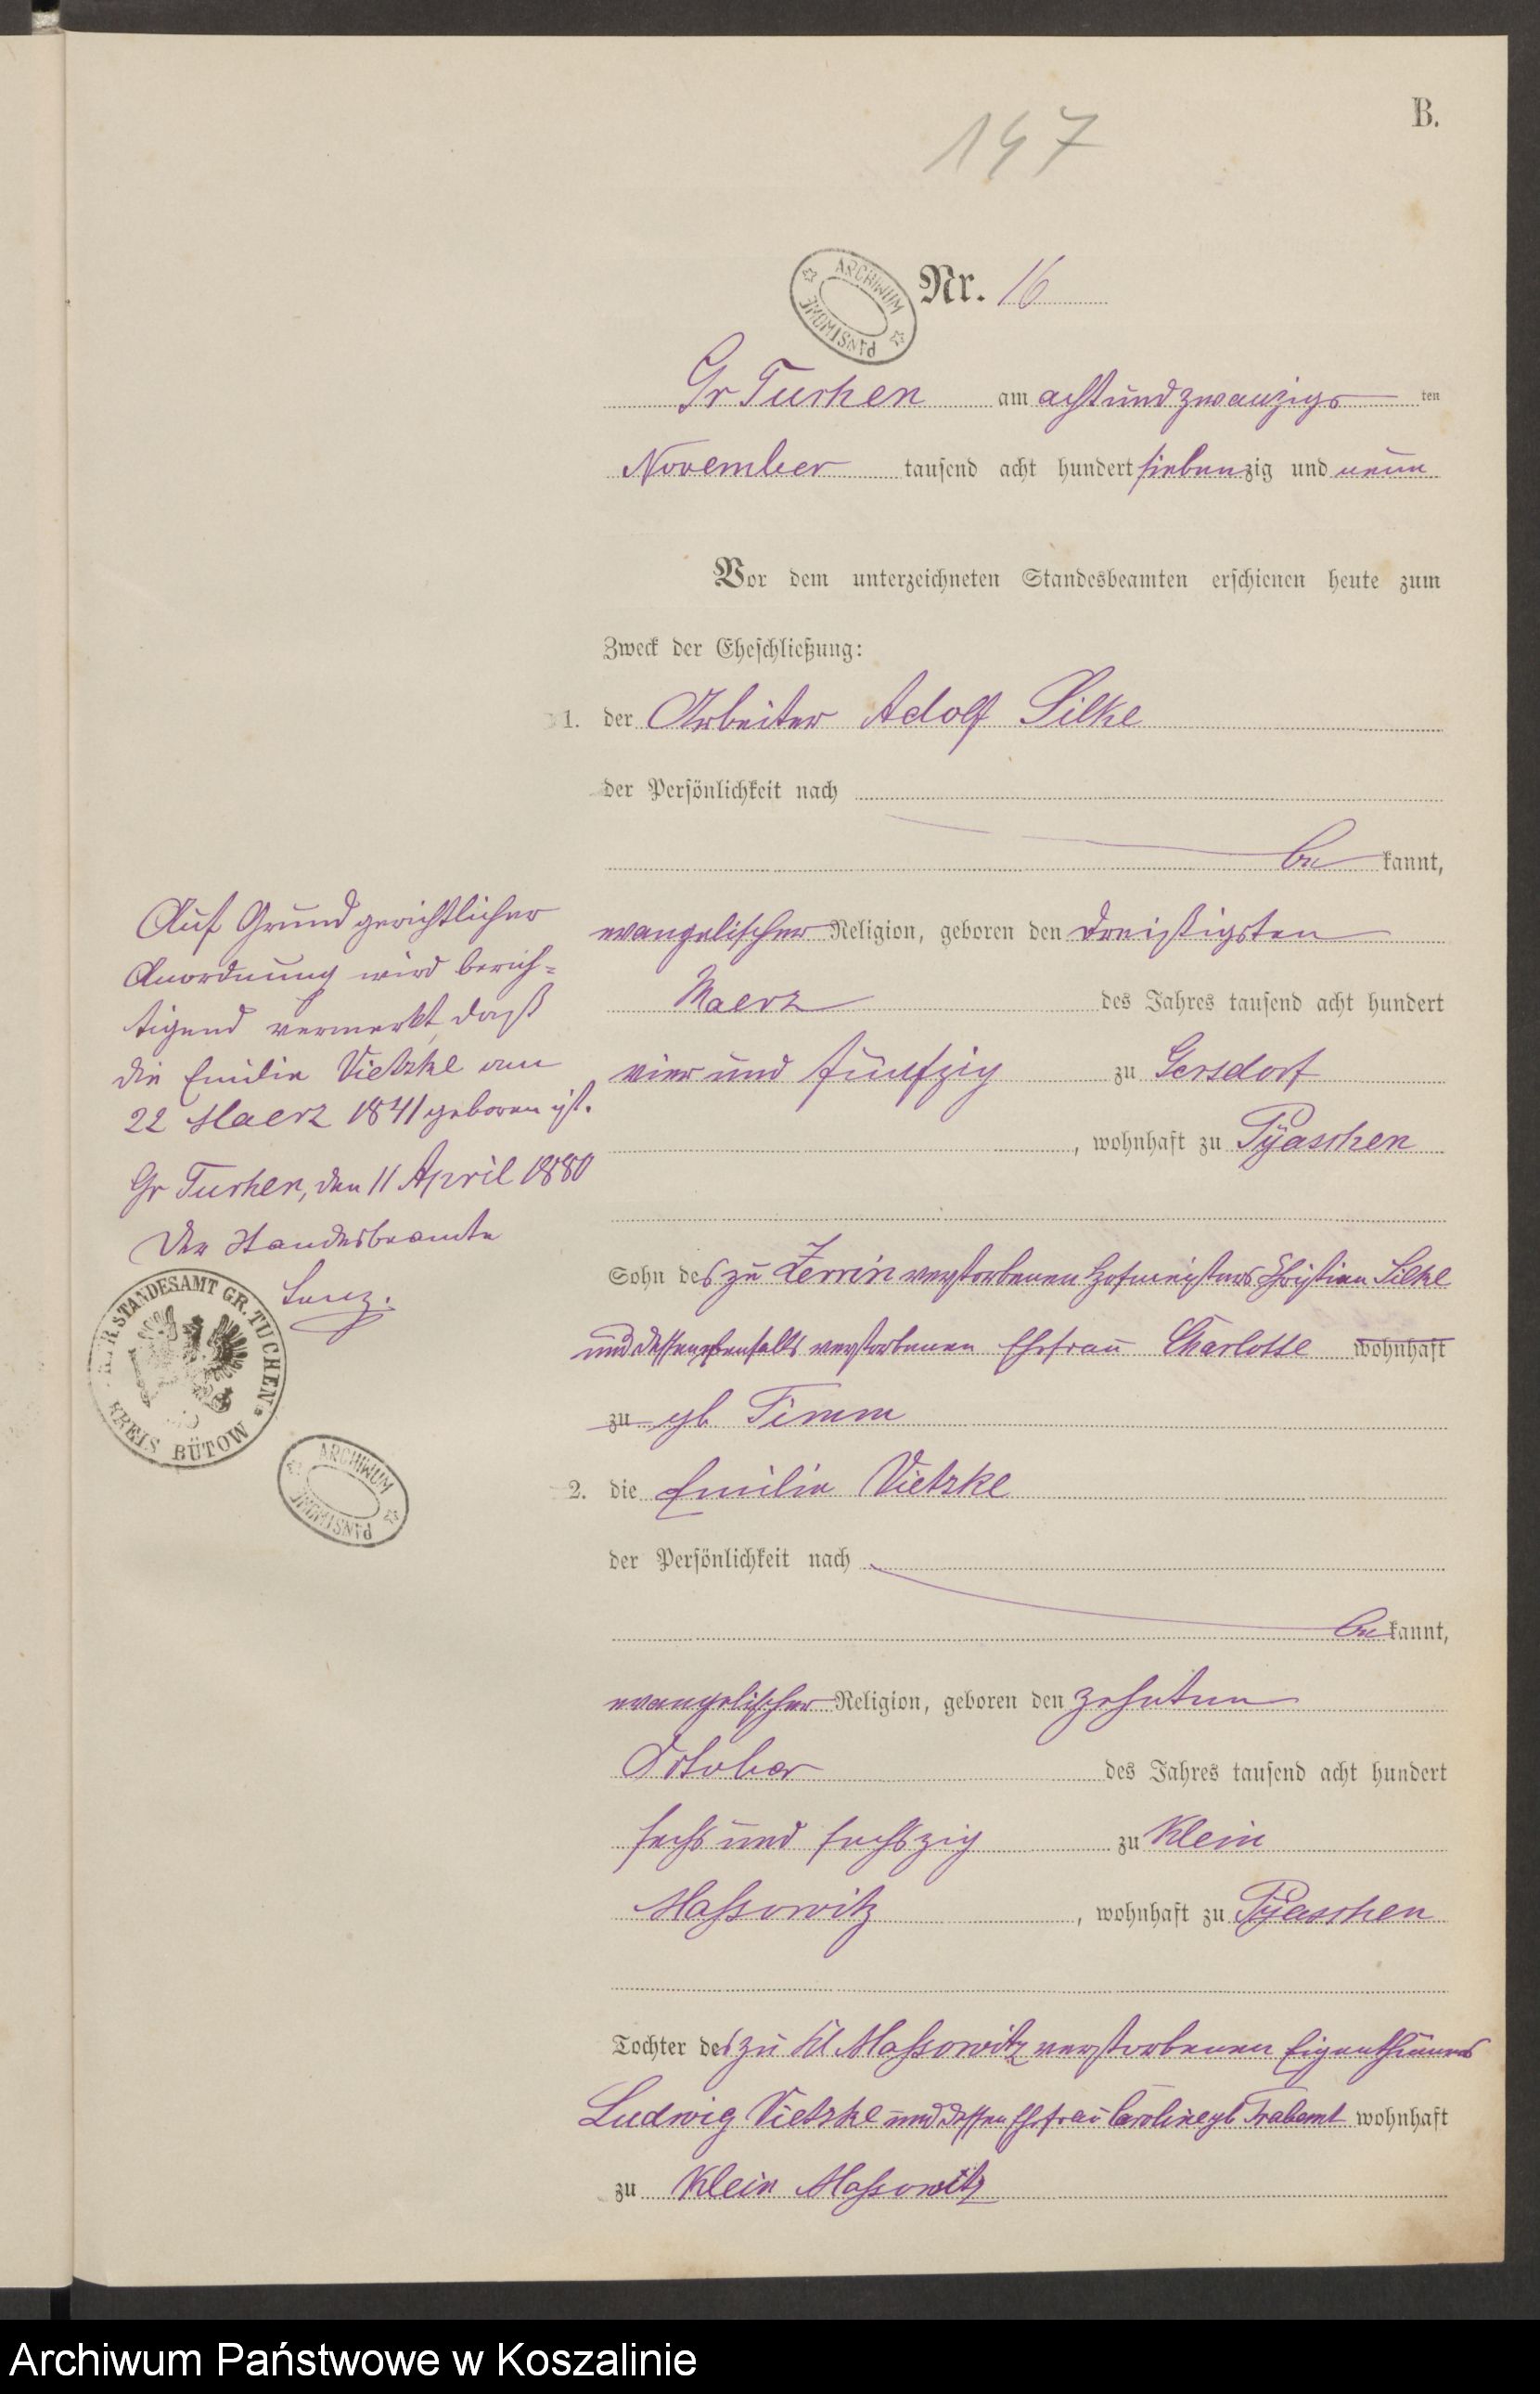 B.
147
Nr. 16
ARCHIWUM PAŃSTWOWE
Gr Tuchen am achtundzwanzigs ten
November tausend acht hundert siebenzig und neun
Vor dem unterzeichneten Standesbeamten erschienen heute zum
Zweck der Eheschließung:
1. der Arbeiter Adolf Silke
der Persönlichkeit nach
be kannt,
evangelischer Religion, geboren den dreißigsten
Maerz des Jahres tausend acht hundert
vier und fünfzig zu Gersdorf
, wohnhaft zu Pyaschen
Sohn des zu Zerrin verstorbenen Hofmeisters Christian Silke
und dessen ebenfalls verstorbenen Ehefrau Charlotte wohnhaft
zu gb Timm
2. die Emilie Vietzke
der Persönlichkeit nach
be kannt,
evangelischer Religion, geboren den zehnten
October des Jahres tausend acht hundert
sechs und sechszig zu Klein
Massowitz , wohnhaft zu Pyaschen
Tochter des zu Kl Massowitz verstorbenen Eigenthümers
Ludwig Vietzke und dessen Ehefrau Caroline gb Trabant wohnhaft
zu Klein Massowitz
Auf Grund gerichtlicher
Anordnung wird berich-
tigend vermerkt, daß
die Emilie Vietzke am
22 Maerz 1841 geboren ist.
Gr Tuchen, den 11 April 1880
Der Standesbeamte
Lenz.
K. PR. STANDESAMT GR. TUCHEN.
KREIS BÜTOW
ARCHIWUM PAŃSTWOWE
Archiwum Państwowe w Koszalinie